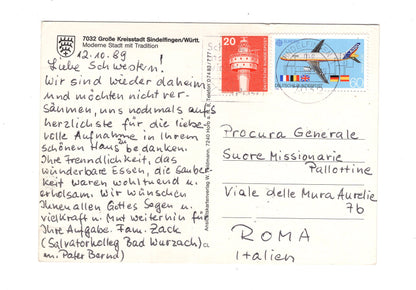 7032 Große Kreisstadt Sindelfingen/Württ.
Moderne Stadt mit Tradition
12.10.89
Liebe Schwestern!
Wir sind wieder daheim
und möchten nicht ver-
säumen, uns nochmals aufs
herzlichste für die liebe-
volle Aufnahme in Ihrem
schönen Haus zu bedanken.
Ihre Freundlichkeit, das
wunderbare Essen, die Sauber-
keit waren wohltuend u.
erholsam. Wir wünschen
Ihnen allen Gottes Segen u.
viel Kraft u. Mut weiterhin für
Ihre Aufgabe. Fam. Zack
(Salvatorkolleg Bad Wurzach) a
m. Pater Bernd)
20
60
Procura Generale
Suore Missionarie
Pallottine
Viale delle Mura Aurelie
7b
ROMA
Italien